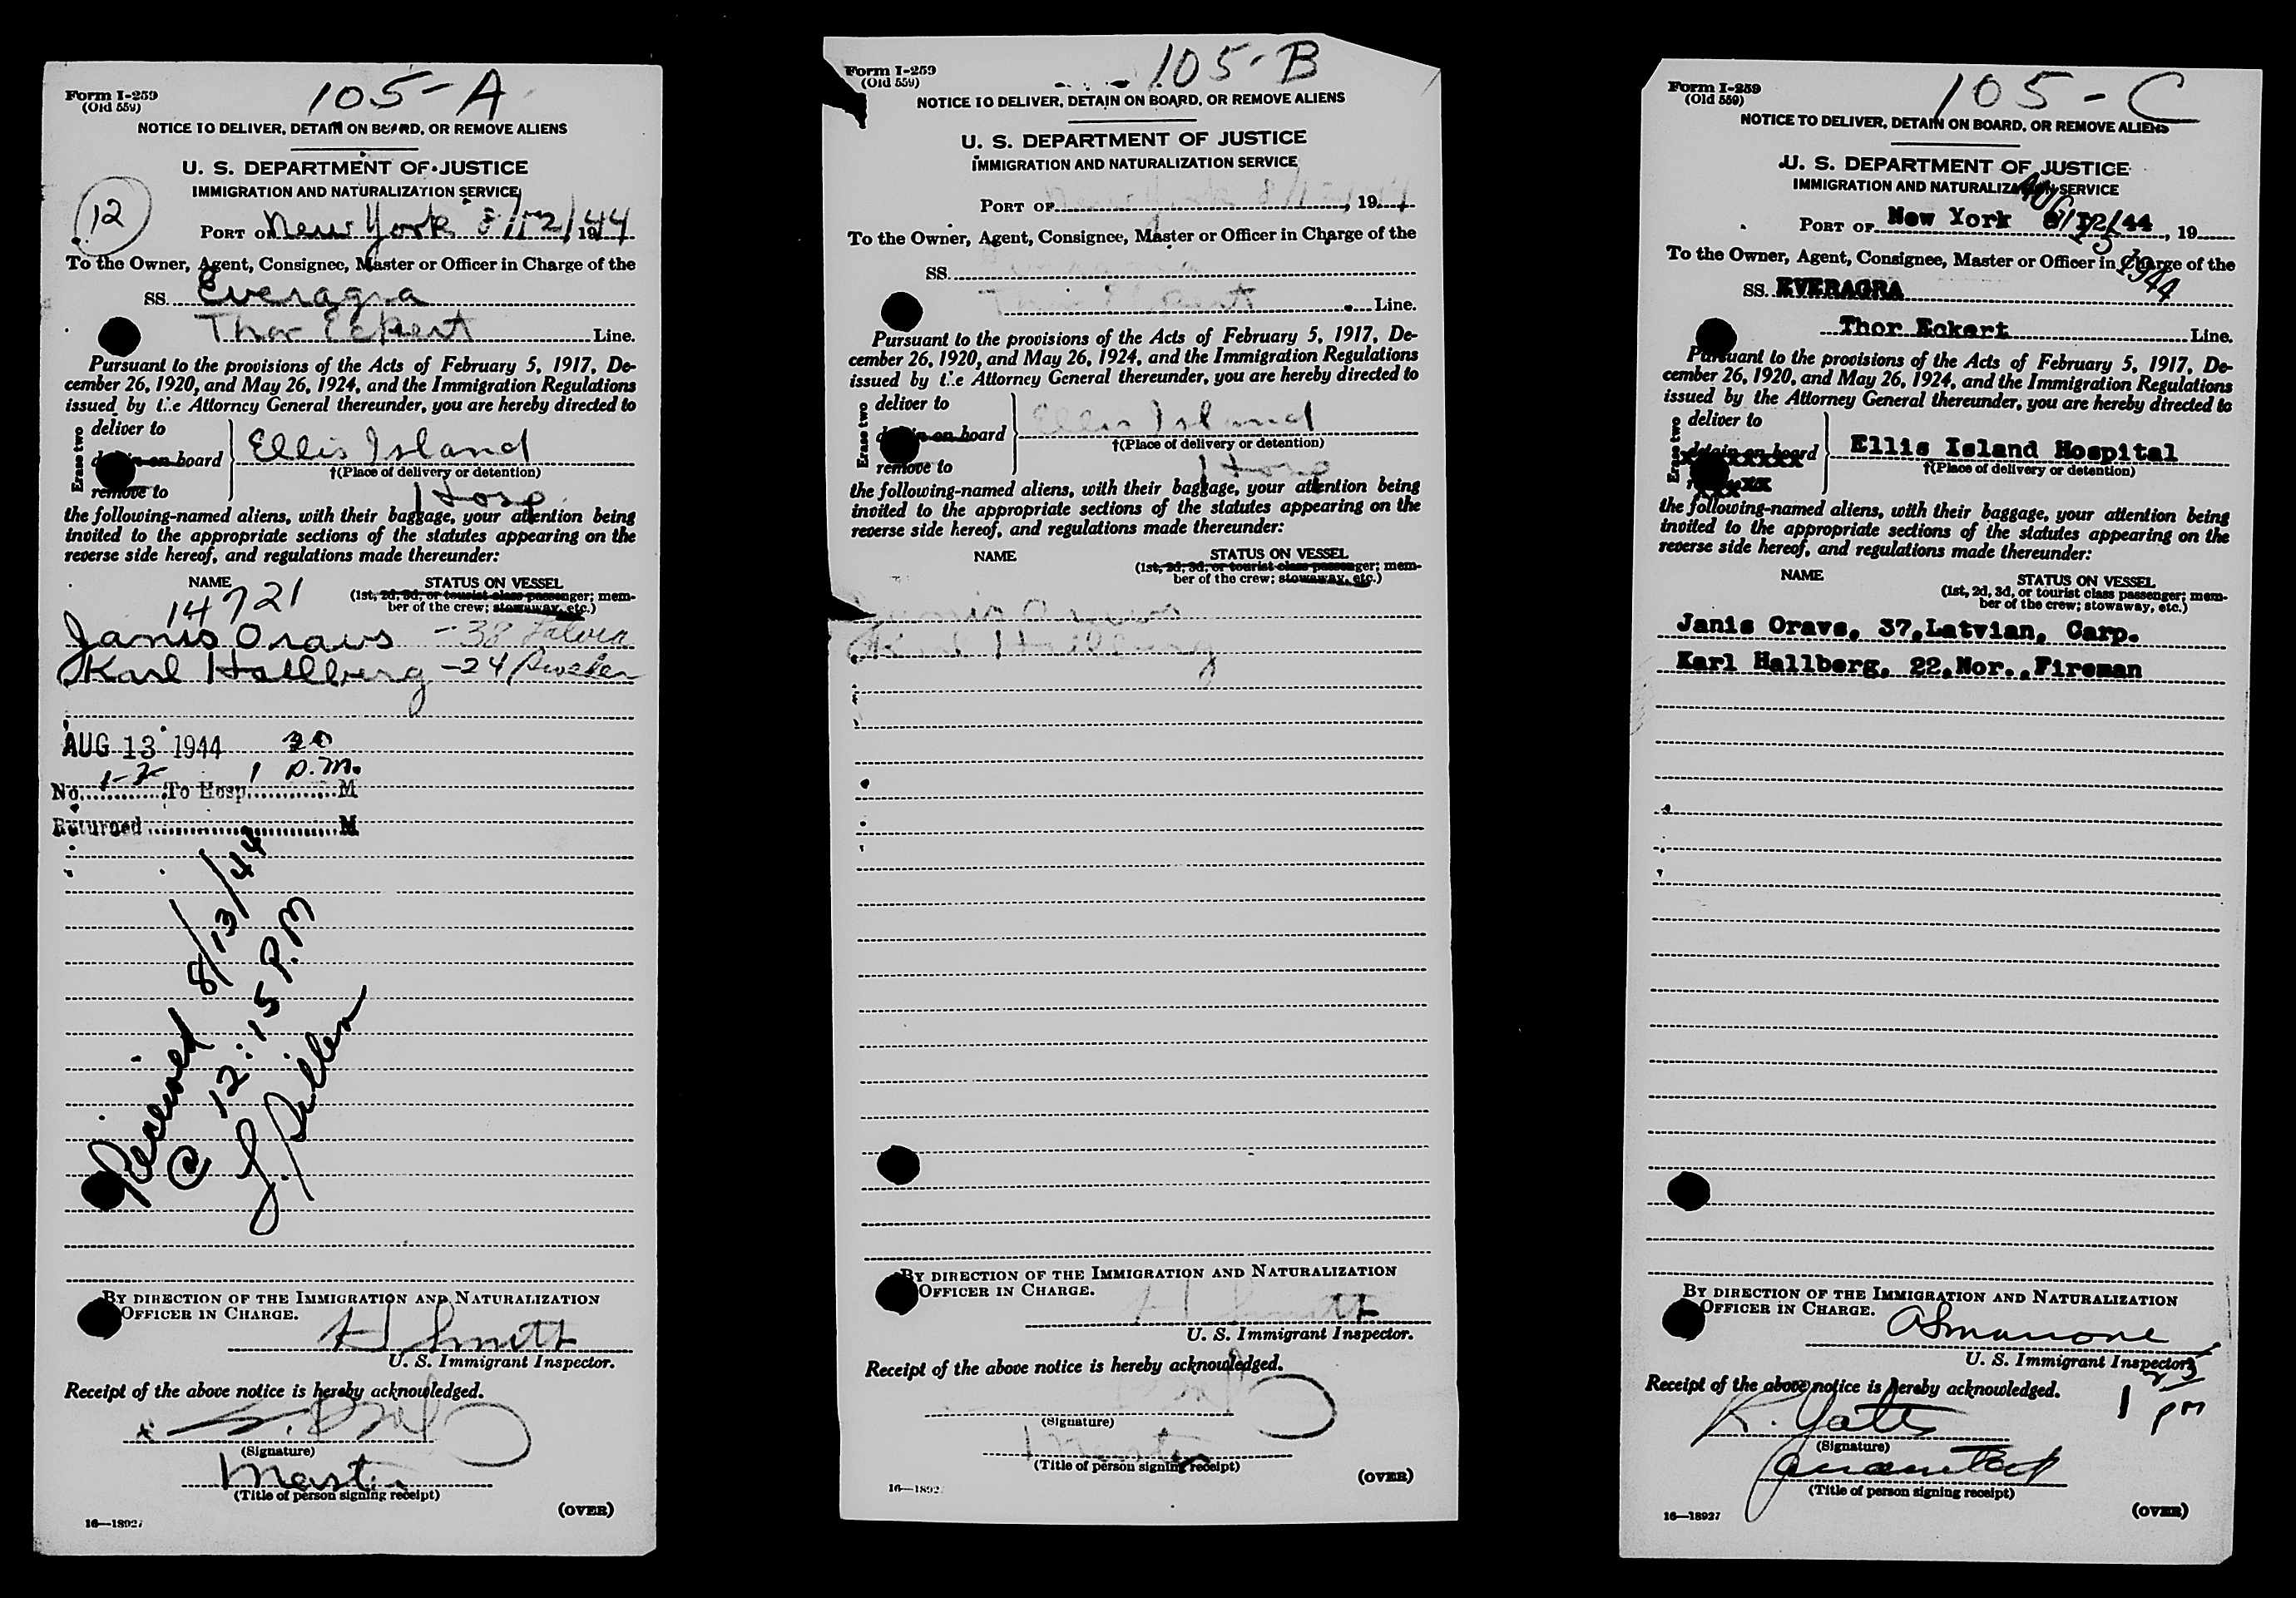 105-A
Form I-259
(Old 559)
NOTICE TO DELIVER, DETAIN ON BOARD, OR REMOVE ALIENS
U. S. DEPARTMENT OF JUSTICE
IMMIGRATION AND NATURALIZATION SERVICE
12
PORT OF New York 8/12/44 19
To the Owner, Agent, Consignee, Master or Officer in Charge of the
SS. Everagra
Thor Eckert Line.
Pursuant to the provisions of the Acts of February 5, 1917, De-
cember 26, 1920, and May 26, 1924, and the Immigration Regulations
issued by the Attorney General thereunder, you are hereby directed to
Erase two
deliver to
detain on board
remove to
Ellis Island
†(Place of delivery or detention)
Hosp.
the following-named aliens, with their baggage, your attention being
invited to the appropriate sections of the statutes appearing on the
reverse side hereof, and regulations made thereunder:
NAME
STATUS ON VESSEL
(1st, 2d, 3d, or tourist class passenger; mem-
ber of the crew; stowaway, etc.)
14721
Janis Oravs - 38 Latvia
Karl Hallberg - 24 Sweden
AUG 13 1944 30
No. 1-2 To Hosp. 1 P.M. M
Returned M
Received 8/13/44
@ 12:15 P.M
BY DIRECTION OF THE IMMIGRATION AND NATURALIZATION
OFFICER IN CHARGE.
H Smith
U. S. Immigrant Inspector.
Receipt of the above notice is hereby acknowledged.
x
(Signature)
Master
(Title of person signing receipt)
(OVER)
16—18927
105-B
Form I-259
(Old 559)
NOTICE TO DELIVER, DETAIN ON BOARD, OR REMOVE ALIENS
U. S. DEPARTMENT OF JUSTICE
IMMIGRATION AND NATURALIZATION SERVICE
PORT OF New York 8/12/44, 19
To the Owner, Agent, Consignee, Master or Officer in Charge of the
SS.
Thor Eckert Line.
Pursuant to the provisions of the Acts of February 5, 1917, De-
cember 26, 1920, and May 26, 1924, and the Immigration Regulations
issued by the Attorney General thereunder, you are hereby directed to
Erase two
deliver to
detain on board
remove to
Ellis Island
†(Place of delivery or detention)
Hosp
the following-named aliens, with their baggage, your attention being
invited to the appropriate sections of the statutes appearing on the
reverse side hereof, and regulations made thereunder:
NAME
STATUS ON VESSEL
(1st, 2d, 3d, or tourist class passenger; mem-
ber of the crew; stowaway, etc.)
Janis Oravs
Karl Hallberg
BY DIRECTION OF THE IMMIGRATION AND NATURALIZATION
OFFICER IN CHARGE.
H Smith
U. S. Immigrant Inspector.
Receipt of the above notice is hereby acknowledged.
(Signature)
Master
(Title of person signing receipt)
(OVER)
16—1892
105-C
Form I-259
(Old 559)
NOTICE TO DELIVER, DETAIN ON BOARD, OR REMOVE ALIENS
U. S. DEPARTMENT OF JUSTICE
IMMIGRATION AND NATURALIZATION SERVICE
PORT OF New York 8/12/44, 19
Aug 13 1944
To the Owner, Agent, Consignee, Master or Officer in Charge of the
SS. EVERAGRA
Thor Eckert Line.
Pursuant to the provisions of the Acts of February 5, 1917, De-
cember 26, 1920, and May 26, 1924, and the Immigration Regulations
issued by the Attorney General thereunder, you are hereby directed to
Erase two
deliver to
detain on board
Ellis Island Hospital
†(Place of delivery or detention)
the following-named aliens, with their baggage, your attention being
invited to the appropriate sections of the statutes appearing on the
reverse side hereof, and regulations made thereunder:
NAME
STATUS ON VESSEL
(1st, 2d, 3d, or tourist class passenger; mem-
ber of the crew; stowaway, etc.)
Janis Oravs, 37, Latvian, Carp.
Karl Hallberg, 22, Nor., Fireman
BY DIRECTION OF THE IMMIGRATION AND NATURALIZATION
OFFICER IN CHARGE.
U. S. Immigrant Inspector.
Receipt of the above notice is hereby acknowledged.
1 PM
K. Yatts
(Signature)
(Title of person signing receipt)
(OVER)
16—18927